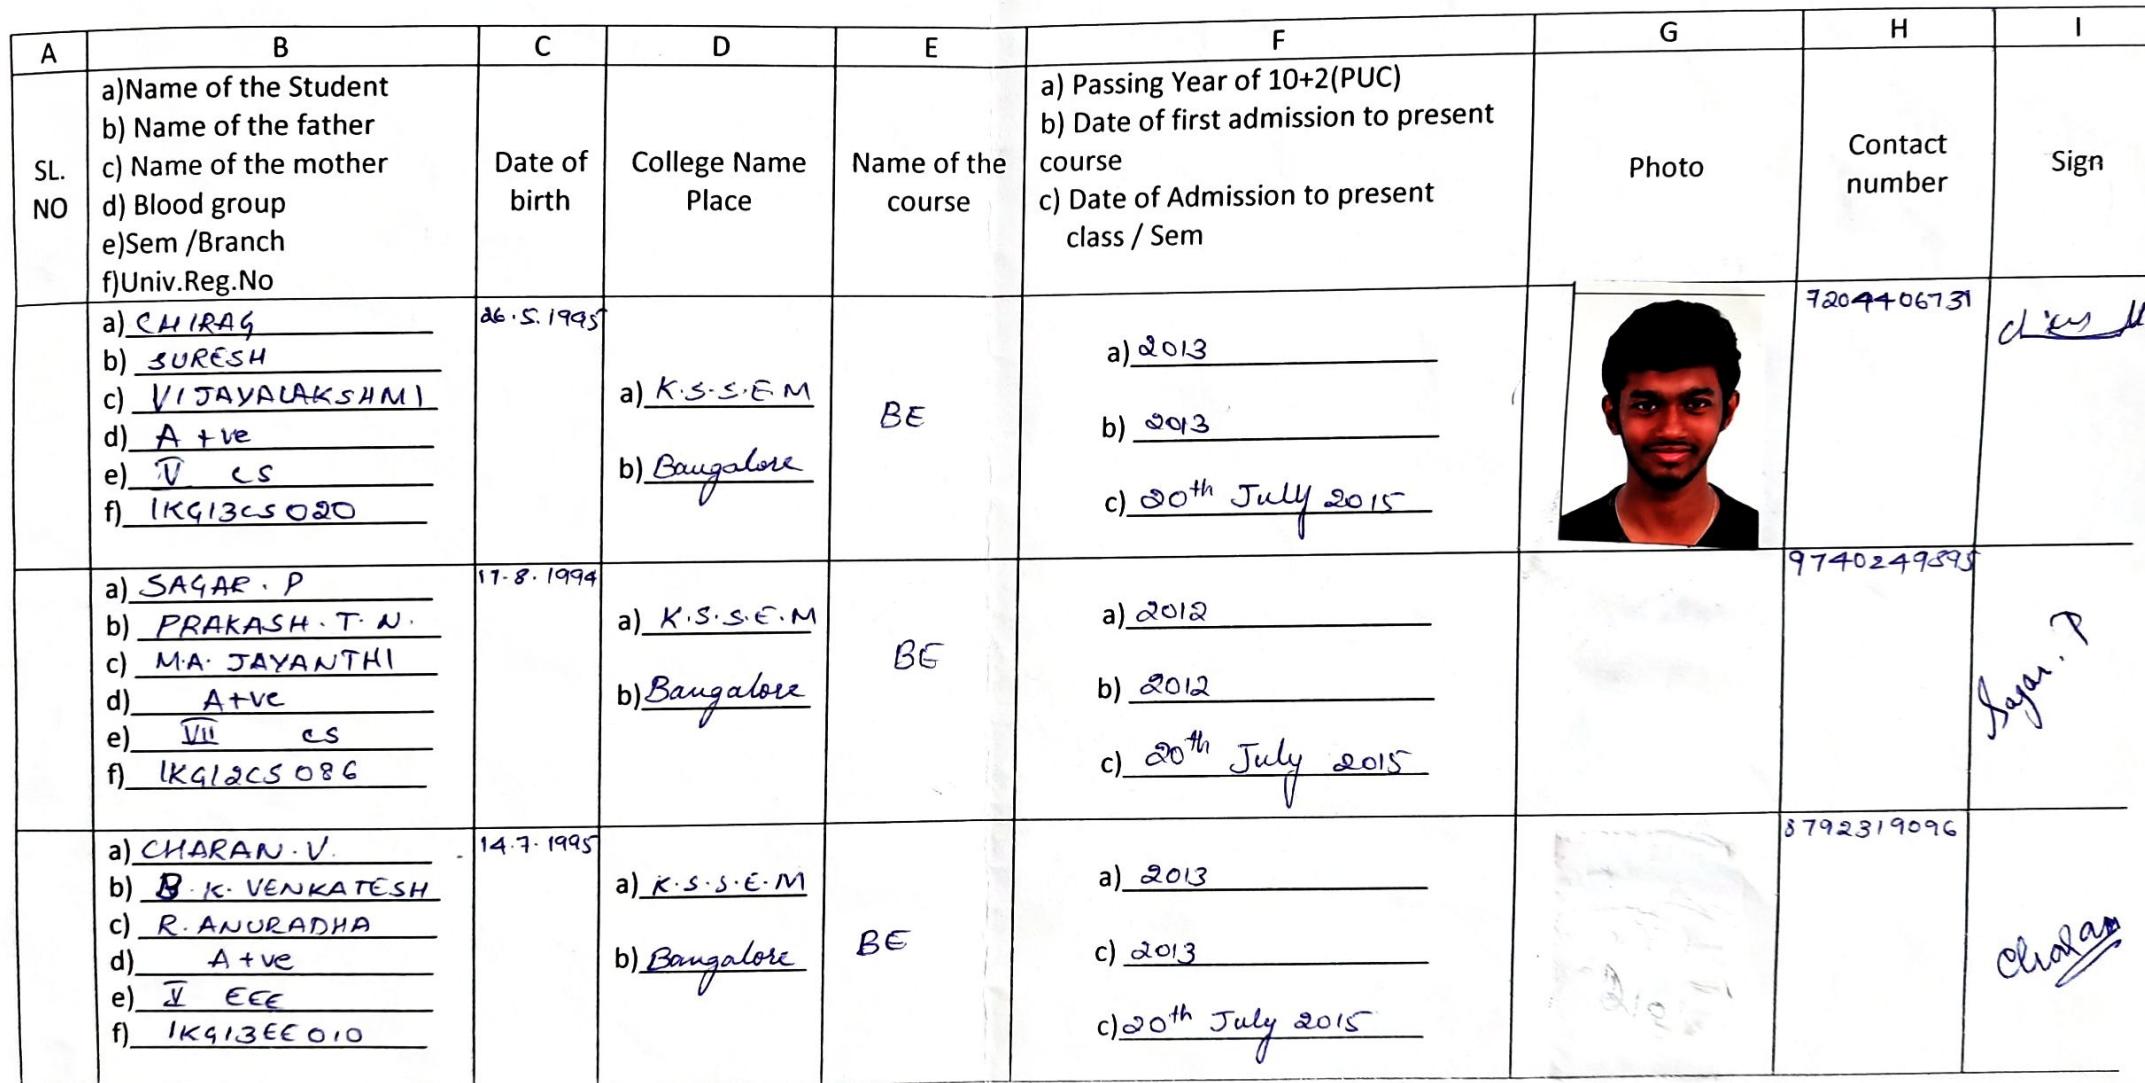 A B C D E F G H I
SL.
NO
a)Name of the Student
b) Name of the father
c) Name of the mother
d) Blood group
e)Sem /Branch
f)Univ.Reg.No
Date of
birth
College Name
Place
Name of the
course
a) Passing Year of 10+2(PUC)
b) Date of first admission to present
course
c) Date of Admission to present
class / Sem
Photo
Contact
number
Sign
a) CHIRAG
b) SURESH
c) VIJAYALAKSHMI
d) A +ve
e) V CS
f) 1KG13CS020
26.5.1995
a) K.S.S.E.M
b) Bangalore
BE
a) 2013
b) 2013
c) 20th July 2015
7204406731
a) SAGAR. P
b) PRAKASH. T. N.
c) M.A. JAYANTHI
d) A+ve
e) VII CS
f) 1KG12CS086
17.8.1994
a) K.S.S.E.M
b) Bangalore
BE
a) 2012
b) 2012
c) 20th July 2015
9740249895
Sagar. P
a) CHARAN. V.
b) B. K. VENKATESH
c) R. ANURADHA
d) A +ve
e) V EEE
f) 1KG13EE010
14.7.1995
a) K.S.S.E.M
b) Bangalore
BE
a) 2013
c) 2013
c) 20th July 2015
8792319096
Charan